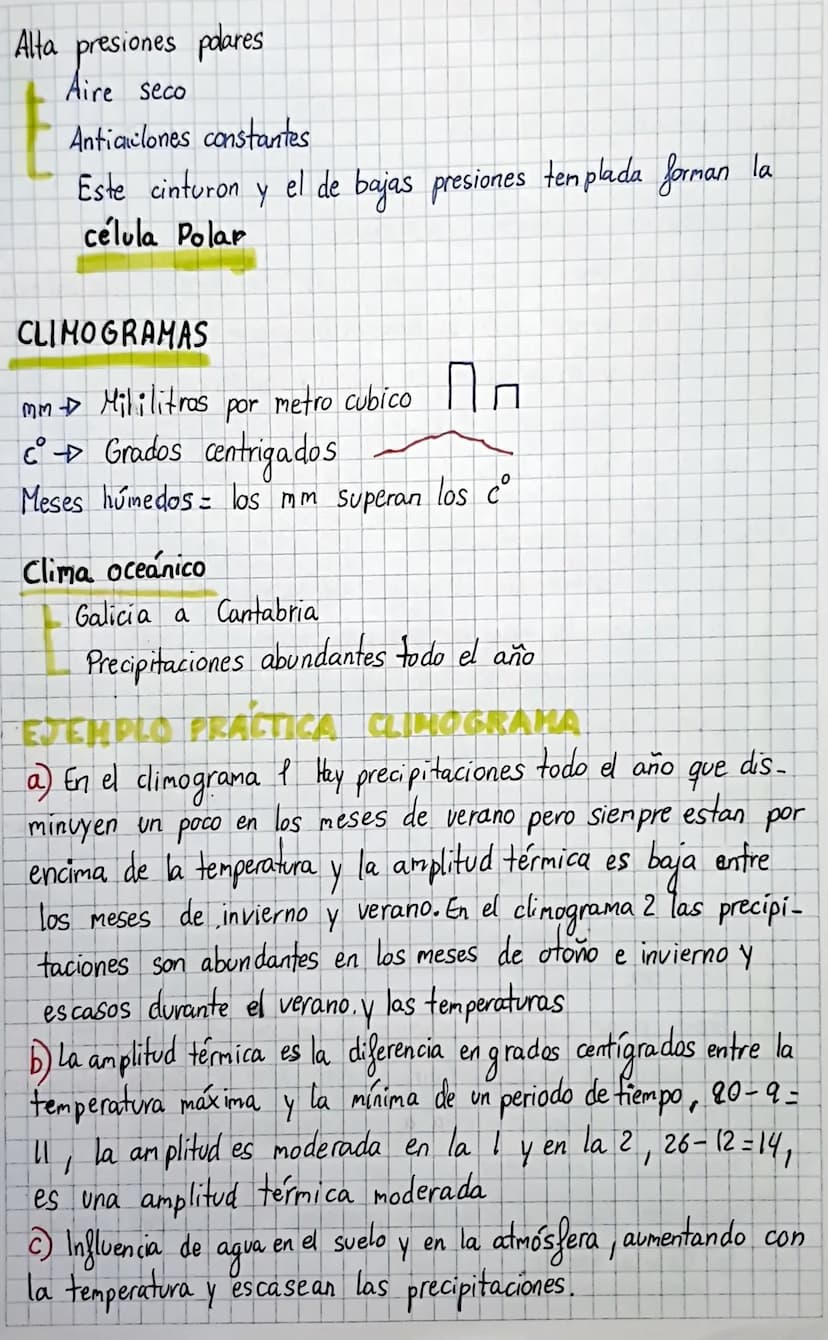 Alta presiones polares
Aire seco
Anticiclones constantes
Este cinturon y el de bajas presiones templada forman la
célula Polar
CLIMOGRAMAS
mm → Mililitros por metro cubico
c° → Grados centrigados
Meses húmedos = los mm superan los c°
Clima oceánico
Galicia a Cantabria
Precipitaciones abundantes todo el año
EJEMPLO PRÁCTICA CLIMOGRAMA
a) En el climograma 1 Hay precipitaciones todo el año que dis-
minuyen un poco en los meses de verano pero siempre estan por
encima de la temperatura y la amplitud térmica es baja entre
los meses de invierno y verano. En el climograma 2 las precipi-
taciones son abundantes en los meses de otoño e invierno y
escasos durante el verano. y las temperaturas
b) La amplitud térmica es la diferencia en grados centígrados entre la
temperatura máxima y la mínima de un periodo de tiempo, 20-9=
11, la amplitud es moderada en la 1 y en la 2, 26-12=14,
es una amplitud térmica moderada
c) Influencia de agua en el suelo y en la atmósfera, aumentando con
la temperatura y escasean las precipitaciones.